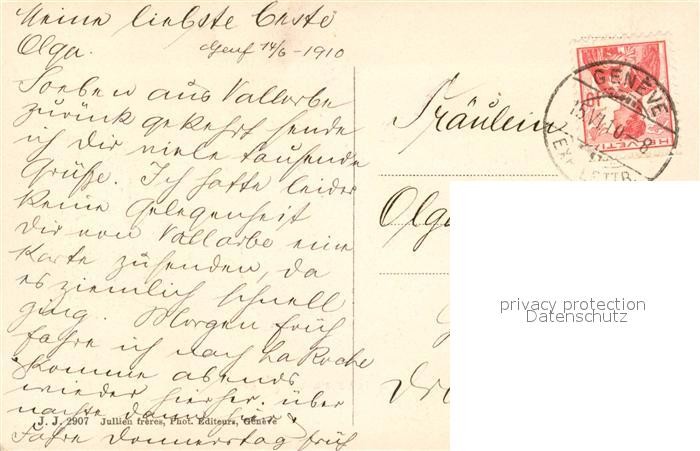 Meine liebste beste
Olga. Genf 14/6-1910
Soeben aus Vallorbe
zurück gekehrt sende
ich Dir viele tausende
Grüße. Ich hatte leider
keine Gelegenheit
Dir von Vallorbe eine
Karte zusenden, da
es ziemlich schnell
ging. Morgen früh
fahre ich nach La Roche
komme abends
wieder hierher, über
nachte dann hier
Fahre Donnerstag früh
J. J. 2907 Jullien frères, Phot. Editeurs, Genève
Fräulein
Olga
GENÈVE
15.VI.10-8
EXP. LETTR.
HELVETIA
privacy protection
Datenschutz